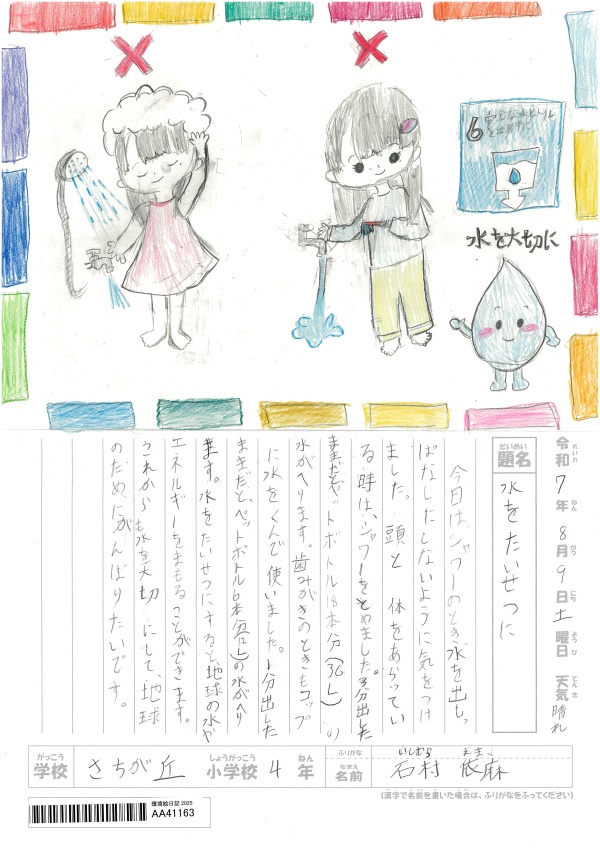 6 安全な水とトイレを世界中に
水を大切に
令和7年8月9日土曜日 天気 晴れ
れいわ ねん がつ にち ようび てんき
だいめい
題名 水をたいせつに
今日は、シャワーのとき、水を出しっ
ぱなしにしないように気をつけ
ました。頭と体をあらってい
る時は、シャワーをとめました。3分出した
ままだとペットボトル18本分(36L)の
水がへります。歯みがきのときもコップ
に水をくんで使いました。1分出した
ままだと、ペットボトル6本分(12L)の水がへり
ます。水をたいせつにすると、地球の水や
エネルギーをまもることができます。
これからも水を大切にして、地球
のためにがんばりたいです。
がっこう しょうがっこう ねん ふりがな いしむら えま
学校 さちが丘 小学校 4年 名前 石村 依麻
なまえ
(漢字で名前を書いた場合は、ふりがなをふってください)
環境絵日記 2025
AA41163